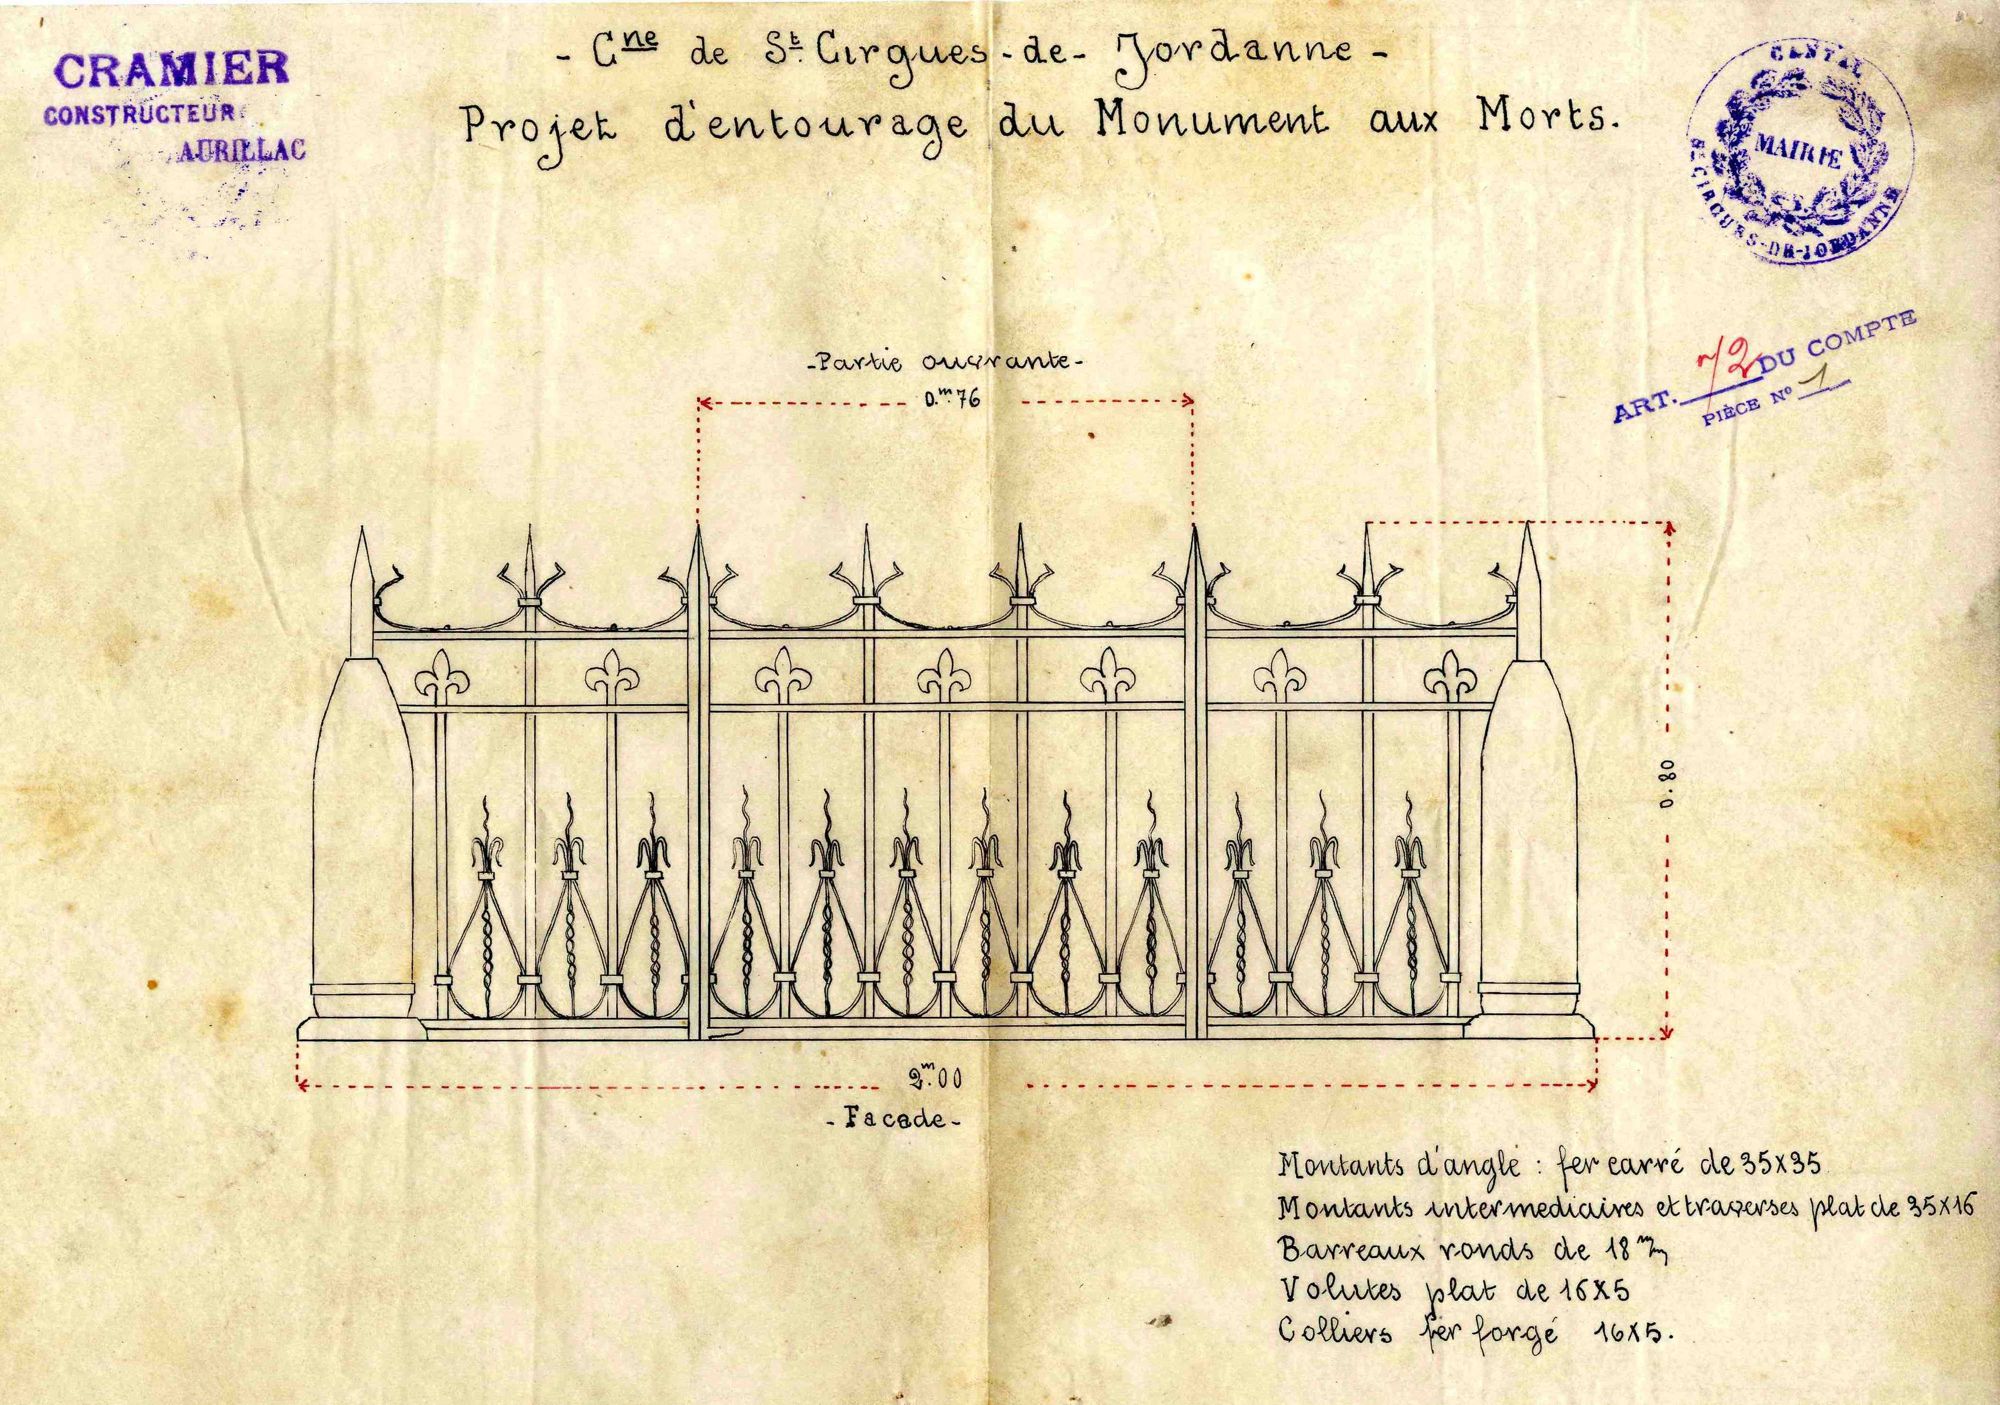 CRAMIER
CONSTRUCTEUR
AURILLAC
- Cne de St. Cirgues-de-Jordanne -
Projet d'entourage du Monument aux Morts.
CANTAL
MAIRIE
St-CIRGUES-DE-JORDANNE
ART. 72 DU COMPTE
PIÈCE No 1
-Partie ouvrante-
0.m76
0.80
2m.00
-Facade-
Montants d'angle : fer carré de 35x35
Montants intermediaires et traverses plat de 35x16
Barreaux ronds de 18 m/m
Volutes plat de 16x5
Colliers fer forgé 16x5.